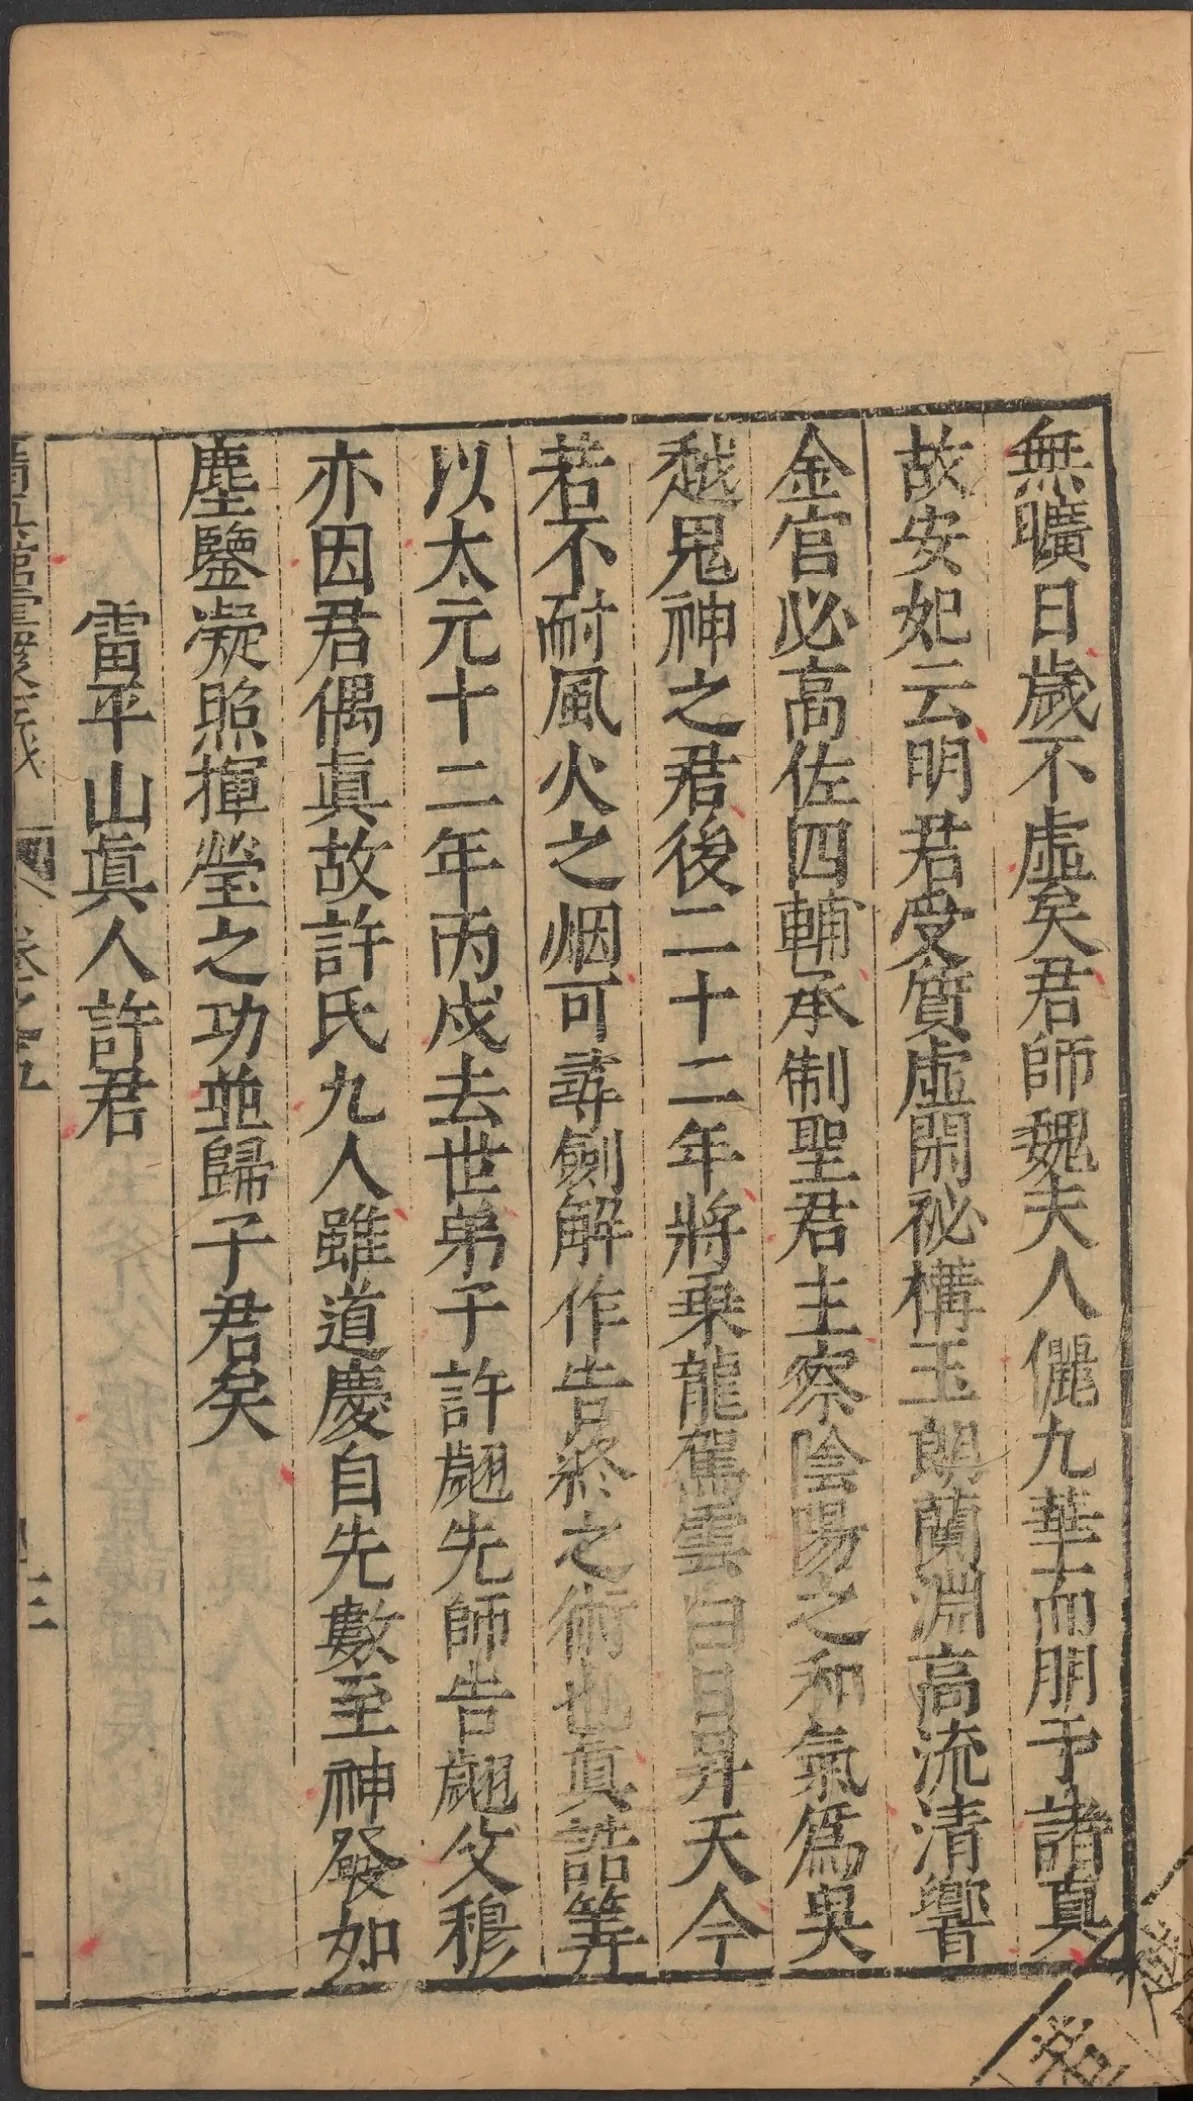 無曠日歲不虛矣君師魏夫人儷九華而朋于諸真
故安妃云明君受質虛閑祕構玉朗蘭淵高流清響
金官必高佐四輔承制聖君主察陰陽之和氣爲吳
越鬼神之君後二十二年將乗龍駕雲白日昇天今
若不耐風火之烟可尋劍解作告終之術也真誥筭
以太元十二年丙戍去世弟子許翽先師告翽父穆
亦因君偶眞故許氏九人雖道慶自先數至神發如
塵鑒凝照揮瑩之功並歸子君矣
雷平山眞人許君